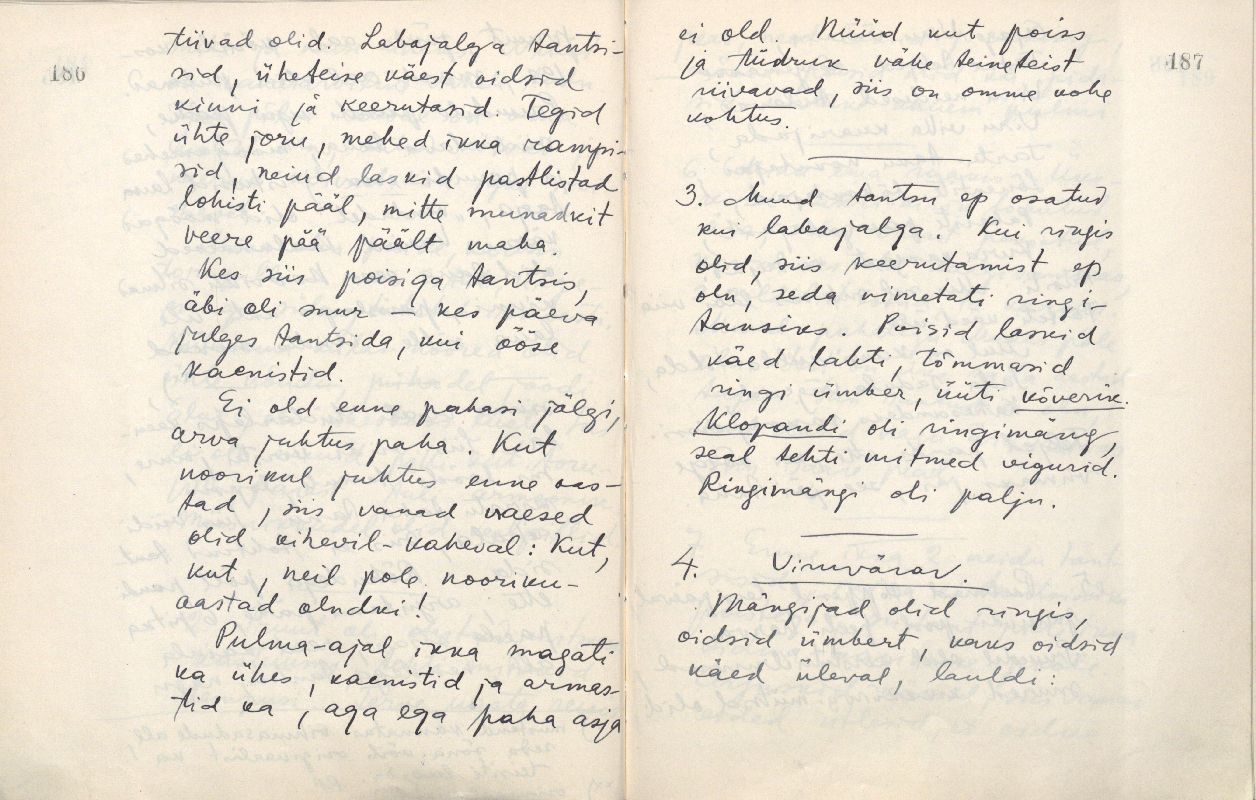 186
tiivad olid. Labajalga tantsi-
sid, üheteise käest oidsid
kinni ja keerutasid. Tegid
ühte joru, mehed ikka rampsi-
sid, neiud laskid pastlistad
lohisti pääl, mitte munadkit
veere pää päält maha.
Kes siis poisiga tantsis,
äbi oli suur — kes päeva
julges tantsida, kui ööse
kaenistid.
Ei old enne pahasi jälgi,
arva juhtus paha. Kut
noorikul juhtus enne aas-
tad, siis vanad vaesed
olid kihevil-kaheval: Kut,
kut, neil pole nooriku-
aastad olndki!
Pulma-ajal ikka magati
ka ühes, kaenistid ja armas-
tid ka, aga ega paha asja
187
ei old. Nüüd kut poiss
ja tüdruk vähe teineteist
riivavad, siis on omme kohe
kohtus.
3. Muud tantsu ep osatud
kui labajalga. Kui ringis
olid, siis keerutamist ep
oln, seda nimetati ringi-
tansiks. Poisid laskid
käed lahti, tõmmasid
ringi ümber, üüti kõverik.
Klopandi oli ringimäng,
seal tehti mitmed vigurid.
Ringimängi oli palju.
4. Viruvärav.
Mängijad olid ringis,
oidsid ümbert, kaks oidsid
käed üleval, lauldi: